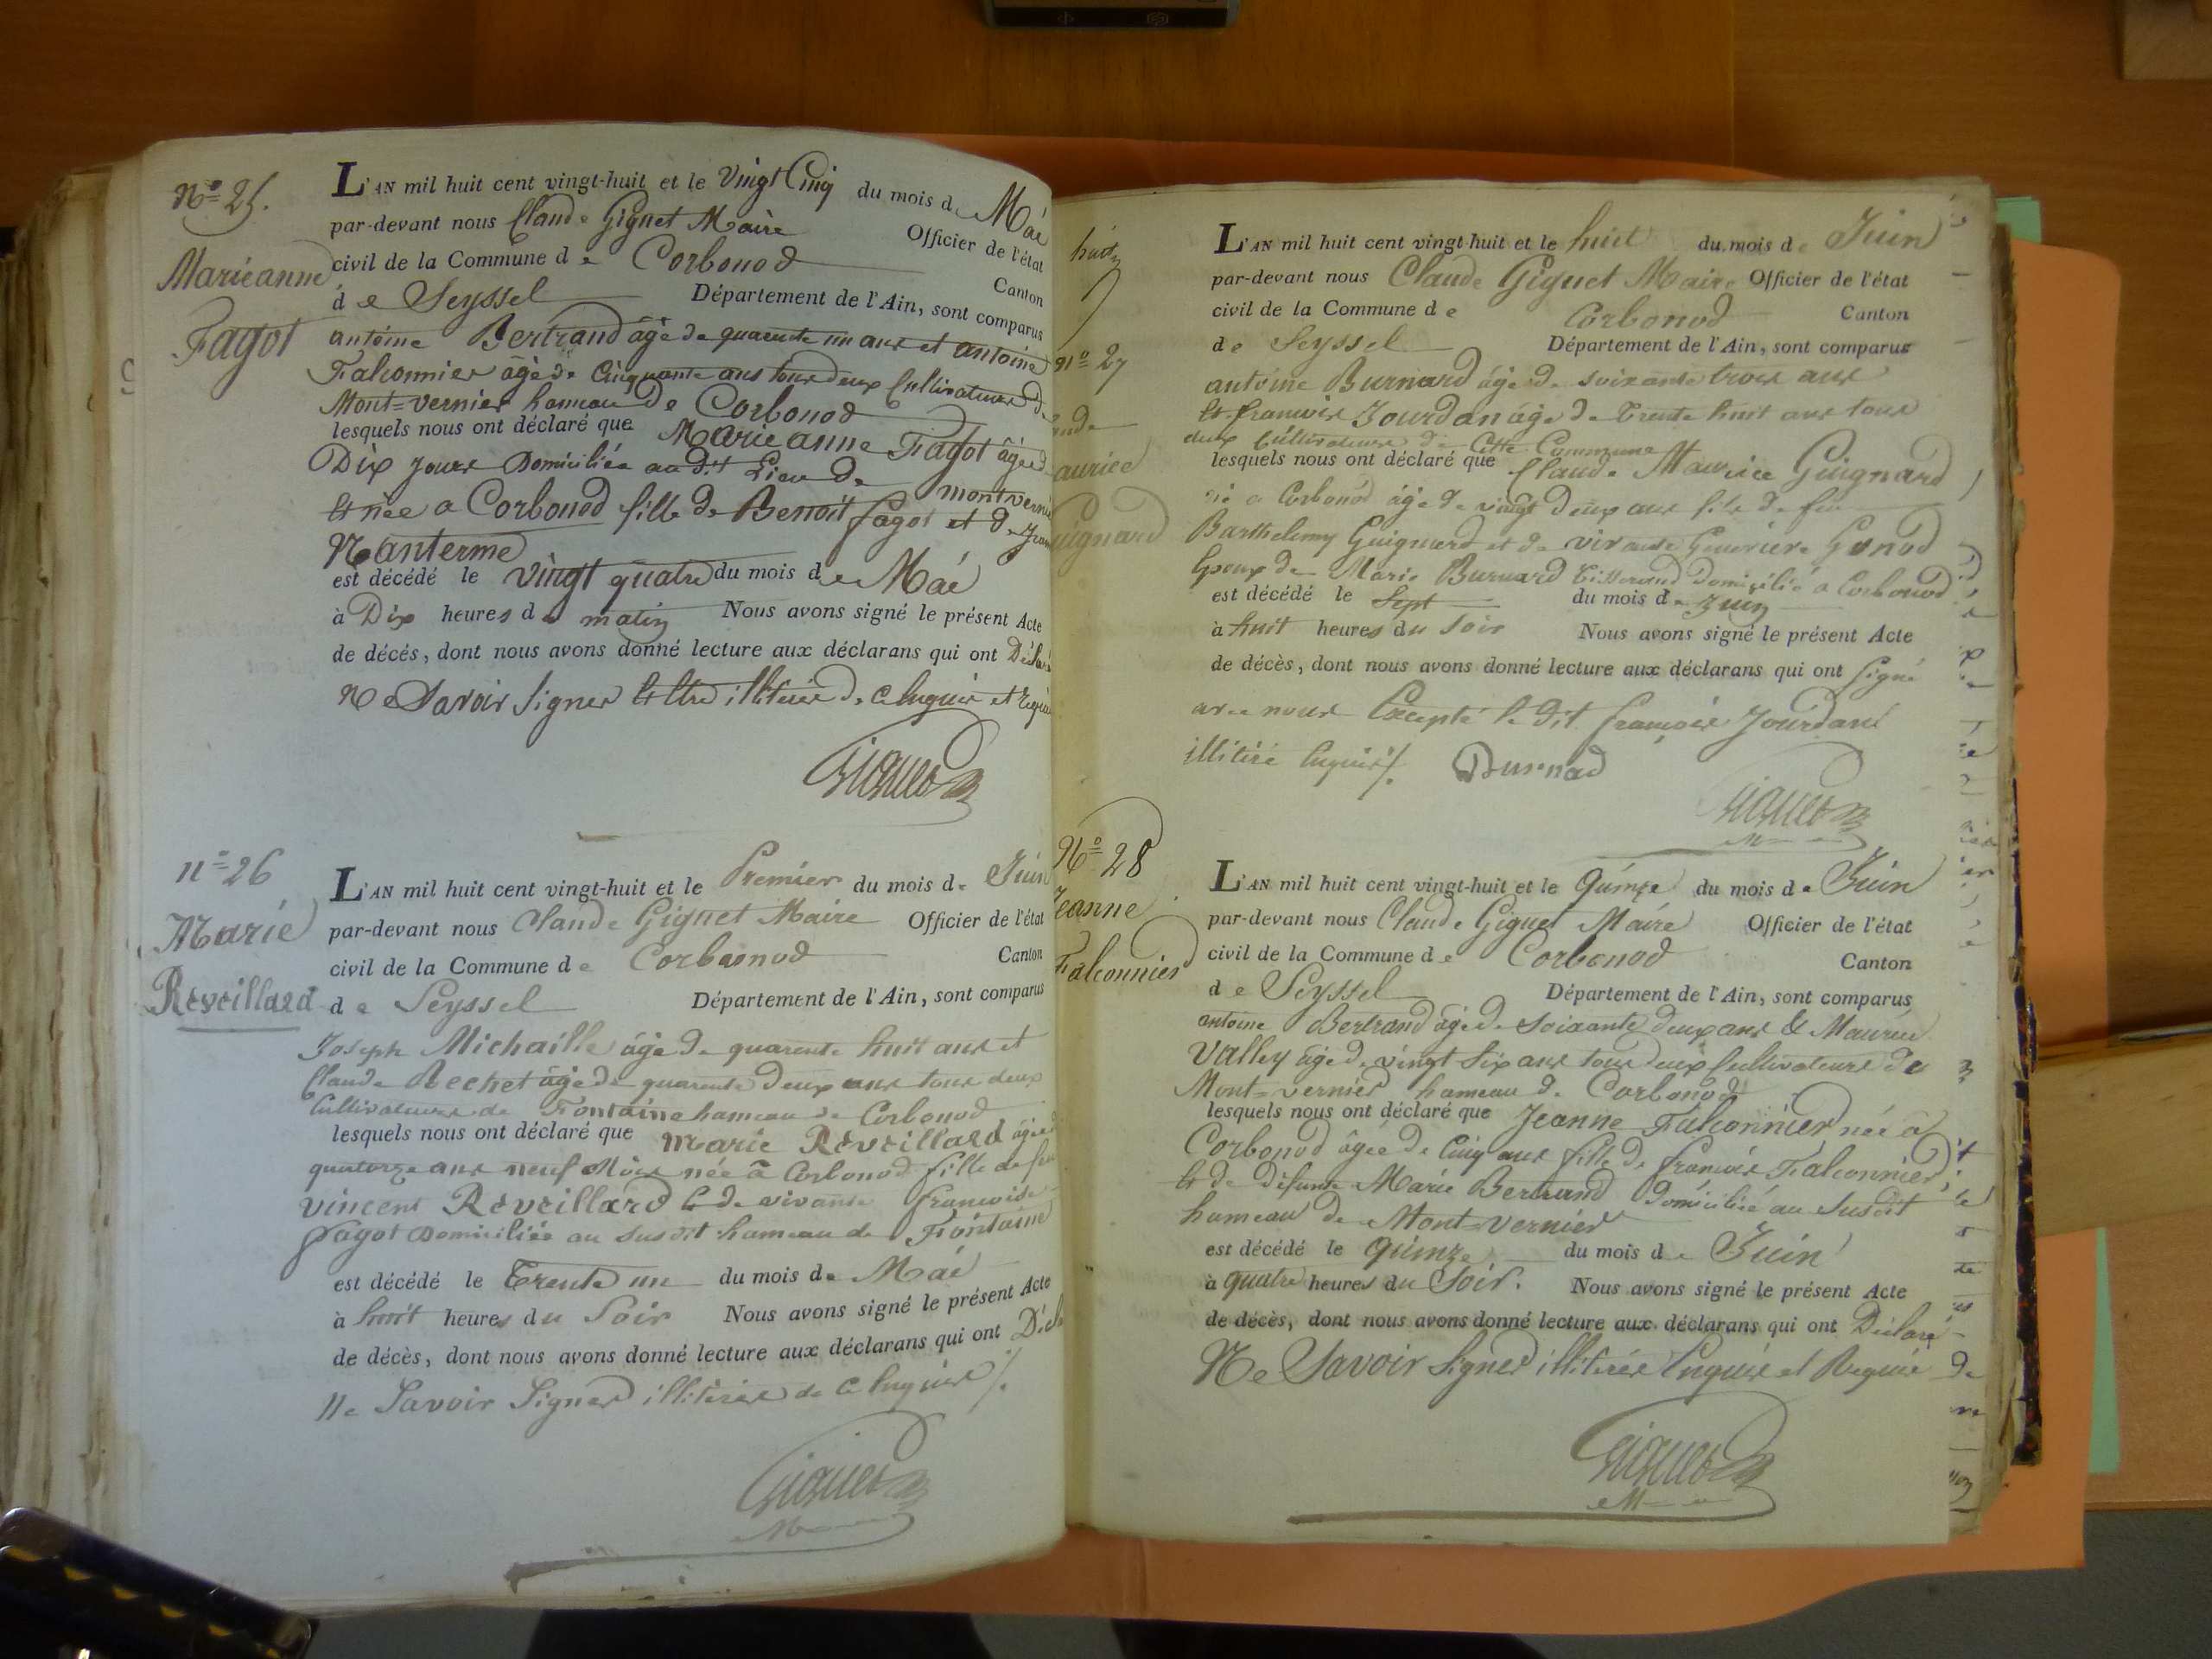 N.o 25.
Marieanne
Fagot
L'AN mil huit cent vingt-huit et le vingt Cinq du mois de Mai
par-devant nous Claude Giguet Maire Officier de l'état
civil de la Commune de Corbonod Canton
de Seyssel Département de l'Ain, sont comparus
antoine Bertrand âgé de quarente un ans et antoine
Falconnier âgé de Cinquante ans tous deux Cultivateurs de
Mont=vernier hameau de Corbonod
lesquels nous ont déclaré que Marieanne Fagot âgée de
Dix jours Domiciliée audit Lieu de montvernier
et née a Corbonod fille de Benoit fagot et de
Nanterme
est décédé le vingt quatre du mois de Mai
à Dix heures du matin Nous avons signé le présent Acte
de décés, dont nous avons donné lecture aux déclarans qui ont Déclaré
Ne Savoir signer illitérés de ce Enquis et requis
Giguet
n.o 26
Marie
Réveillard
L'AN mil huit cent vingt-huit et le Premier du mois de Juin
par-devant nous Claude Giguet Maire Officier de l'état
civil de la Commune de Corbonod Canton
de Seyssel Département de l'Ain, sont comparus
Joseph Michaille âgé de quarente huit ans et
Claude Bechet âgé de quarente deux ans tous deux
Cultivateurs de Fontaine hameau de Corbonod
lesquels nous ont déclaré que Marie Réveillard âgée de
quatorze ans neuf Mois née à Corbonod fille de feu
vincent Réveillard & de vivante francoise
fagot Domiciliée au susdit hameau de Fontaine
est décédé le Trente un du mois de Mai
à huit heures du Soir Nous avons signé le présent Acte
de décès, dont nous avons donné lecture aux déclarans qui ont Décl
Ne Savoir Signer illitérés de ce Enquis /.
Giguet
N.o 27
aurice
uignard
L'AN mil huit cent vingt-huit et le huit du mois de Juin
par-devant nous Claude Giguet Maire Officier de l'état
civil de la Commune de Corbonod Canton
de Seyssel Département de l'Ain, sont comparus
antoine Burnard âgé de soixante trois ans
et francois Jourdan âgé de trente huit ans tous
deux Cultivateurs de Cette Commune
lesquels nous ont déclaré que Claude Maurice Guignard
né a Corbonod âgé de vingt deux ans fils de feu
Barthelemy Guignard et de vivante Genevieve Gonod
Epoux de Marie Burnard Tisserand Domicilié a Corbonod
est décédé le Sept du mois de Juin
à huit heures du Soir Nous avons signé le présent Acte
de décès, dont nous avons donné lecture aux déclarans qui ont signé
avec nous Excepté le dit francois Jourdan
illitéré Enquis /. Burnad
Giguet
N.o 28
Jeanne
Falconnier
L'AN mil huit cent vingt-huit et le Quinze du mois de Juin
par-devant nous Claude Giguet Maire Officier de l'état
civil de la Commune de Corbonod Canton
de Seyssel Département de l'Ain, sont comparus
antoine Bertrand âgé de soixante deux ans & Maurice
Valley âgé de vingt six ans tous deux Cultivateurs de
Mont=vernier hameau de Corbonod
lesquels nous ont déclaré que Jeanne Falconnier née à
Corbonod âgée de Cinq ans fille de francois Falconnier
et de défunte Marie Bertrand Domiciliée au susdit
hameau de Mont=vernier
est décédé le Quinze du mois de Juin
à quatre heures du Soir. Nous avons signé le présent Acte
de décès, dont nous avons donné lecture aux déclarans qui ont Déclaré
Ne Savoir Signer illitérés Enquis et Requis
Giguet